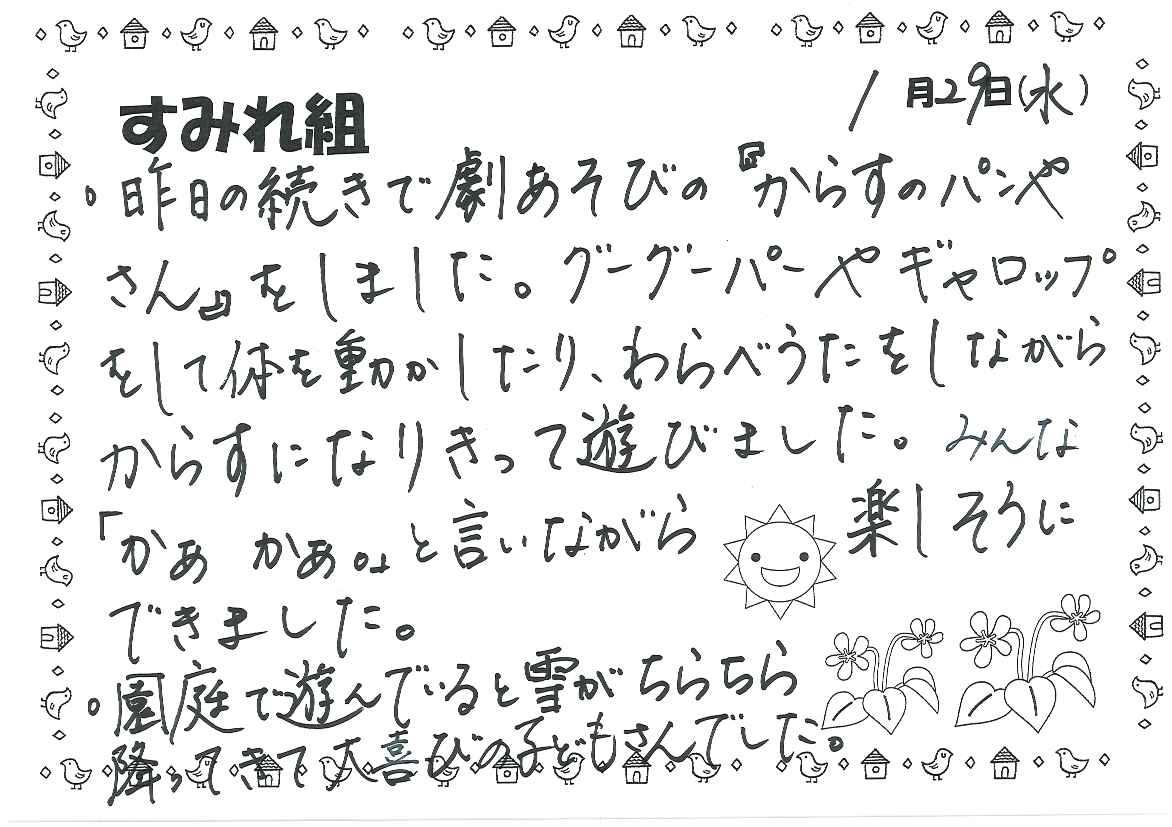 すみれ組
1月29日(水)
。昨日の続きで劇あそびの『からすのパンや
さん』をしました。グーグーパーやギャロップ
をして体を動かしたり、わらべうたをしながら
からすになりきって遊びました。みんな
「かぁ かぁ。」と言いながら 楽しそうに
できました。
。園庭で遊んでいると雪がちらちら
降ってきて大喜びの子どもさんでした。